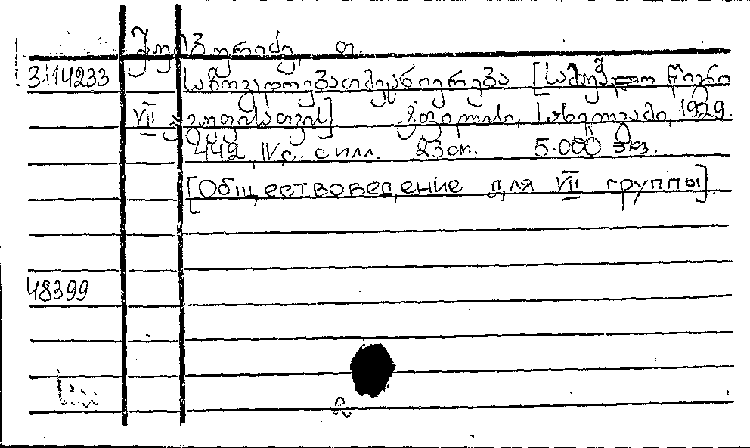 3114233 საზოგადოებათმეცნიერება [სამუშაო წიგნი
VII ჯგუფისათვის] ტფილისი, სახელგამი, 1929.
442, IV с. с илл. 23 см. 5.000 экз.
[Обществоведение для VII группы]
48399